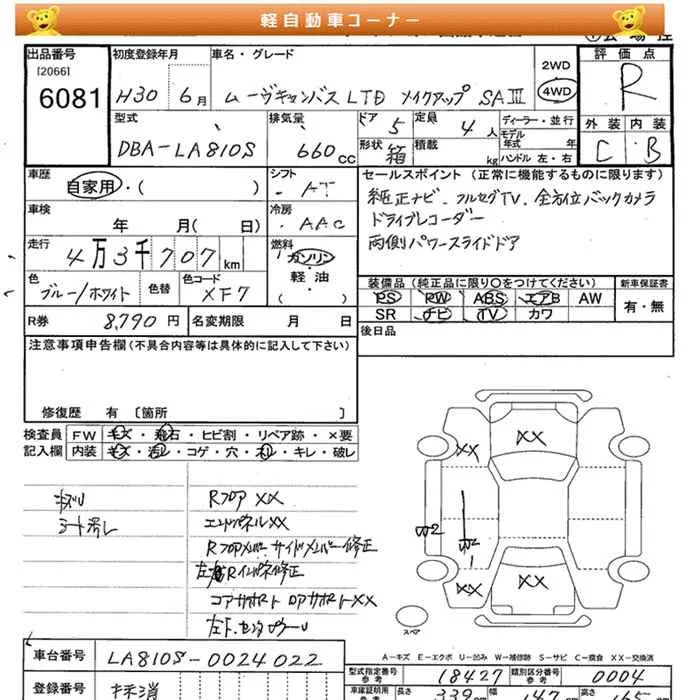 軽自動車コーナー
出品番号
[2066]
6081
初度登録年月
H30 6月
車名・グレード
ムーヴキャンバス LTD メイクアップ SAⅢ
2WD
4WD
評価点
R
型式
DBA-LA810S
排気量
660cc
ドア
5
定員
4人
形状
箱
積載
kg
ディーラー・並行
モデル
年式 年
ハンドル 左・右
外装 内装
C B
車歴
自家用・( )
シフト
・AT
セールスポイント (正常に機能するものに限ります)
純正ナビ・フルセグTV・全方位バックカメラ
ドライブレコーダー
両側パワースライドドア
車検
年 月( 日)
冷房
・AAC
走行
4万3千707km
燃料
ガソリン
軽・油
( ・ )
色
ブルー/ホワイト
色替
色コード
・XF7
装備品 (純正品に限り○をつけてください)
PS PW ABS エアB AW
SR ナビ TV カワ
新車保証書
有・無
R券 8,790円
名変期限 月 日
後日品
注意事項申告欄(不具合内容等は具体的に記入して下さい)
修復歴 有 〔箇所 〕
検査員 FW キズ・飛石・ヒビ割・リペア跡・×要
記入欄 内装 キズ・汚レ・コゲ・穴・スレ・キレ・破レ
キズU
シート汚レ
Rフロア XX
エンドパネルXX
Rフロアメンバー サイドメンバー修正
左右Rインパネ修正
コアサポート ロアサポートXX
XX
XX
W2
W2
XX
XX
スペア
A-キズ E-エクボ U-凹み W-補修跡 S-サビ C-腐食 XX-交換済
車台番号
LA810S-0024022
型式指定番号
参考
18427
類別区分番号
参考
0004
登録番号
抹消
車庫証明用
長さ 339cm
幅 147cm
高さ 165cm